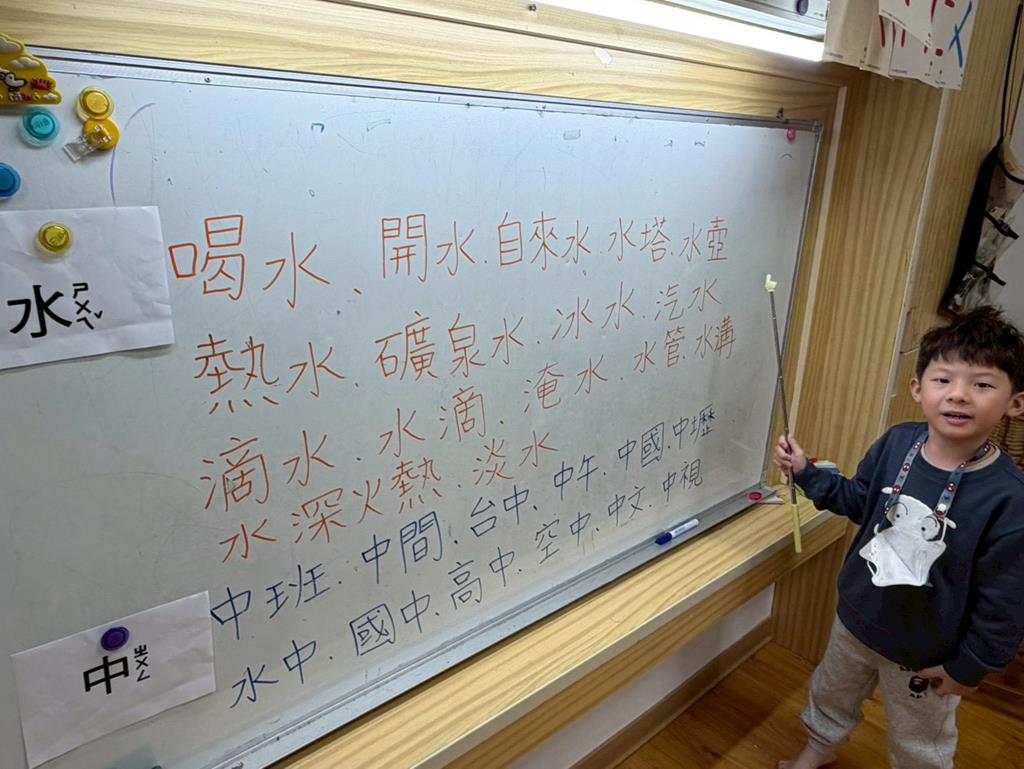 水 ㄕㄨㄟˇ
喝水、開水.自來水.水塔.水壺
熱水.礦泉水.冰水.汽水
滴水.水滴.淹水.水管.水溝
水深火熱.淡水
中 ㄓㄨㄥ
中班.中間.台中.中午.中國.中壢
水中.國中.高中.空中.中文.中視